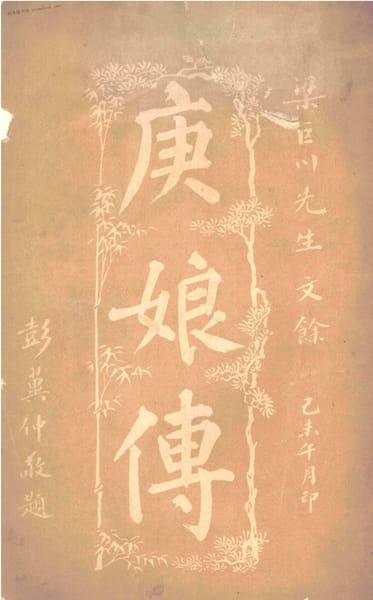 梁巨川先生文餘
己未午月印
庚娘傳
彭翼仲敬題